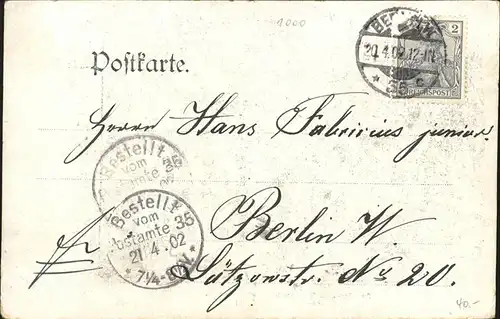 1000
BERLIN W.
20.4.02.12-1N.
* 35 c
2
REICHSPOST
Postkarte.
Herrn Hans Fabricius junior.
Bestellt
vom
Bestellt
vom
Postamte 35
21/4.02
* 7¼-
Berlin W.
Lützowstr. No 20.
40.-